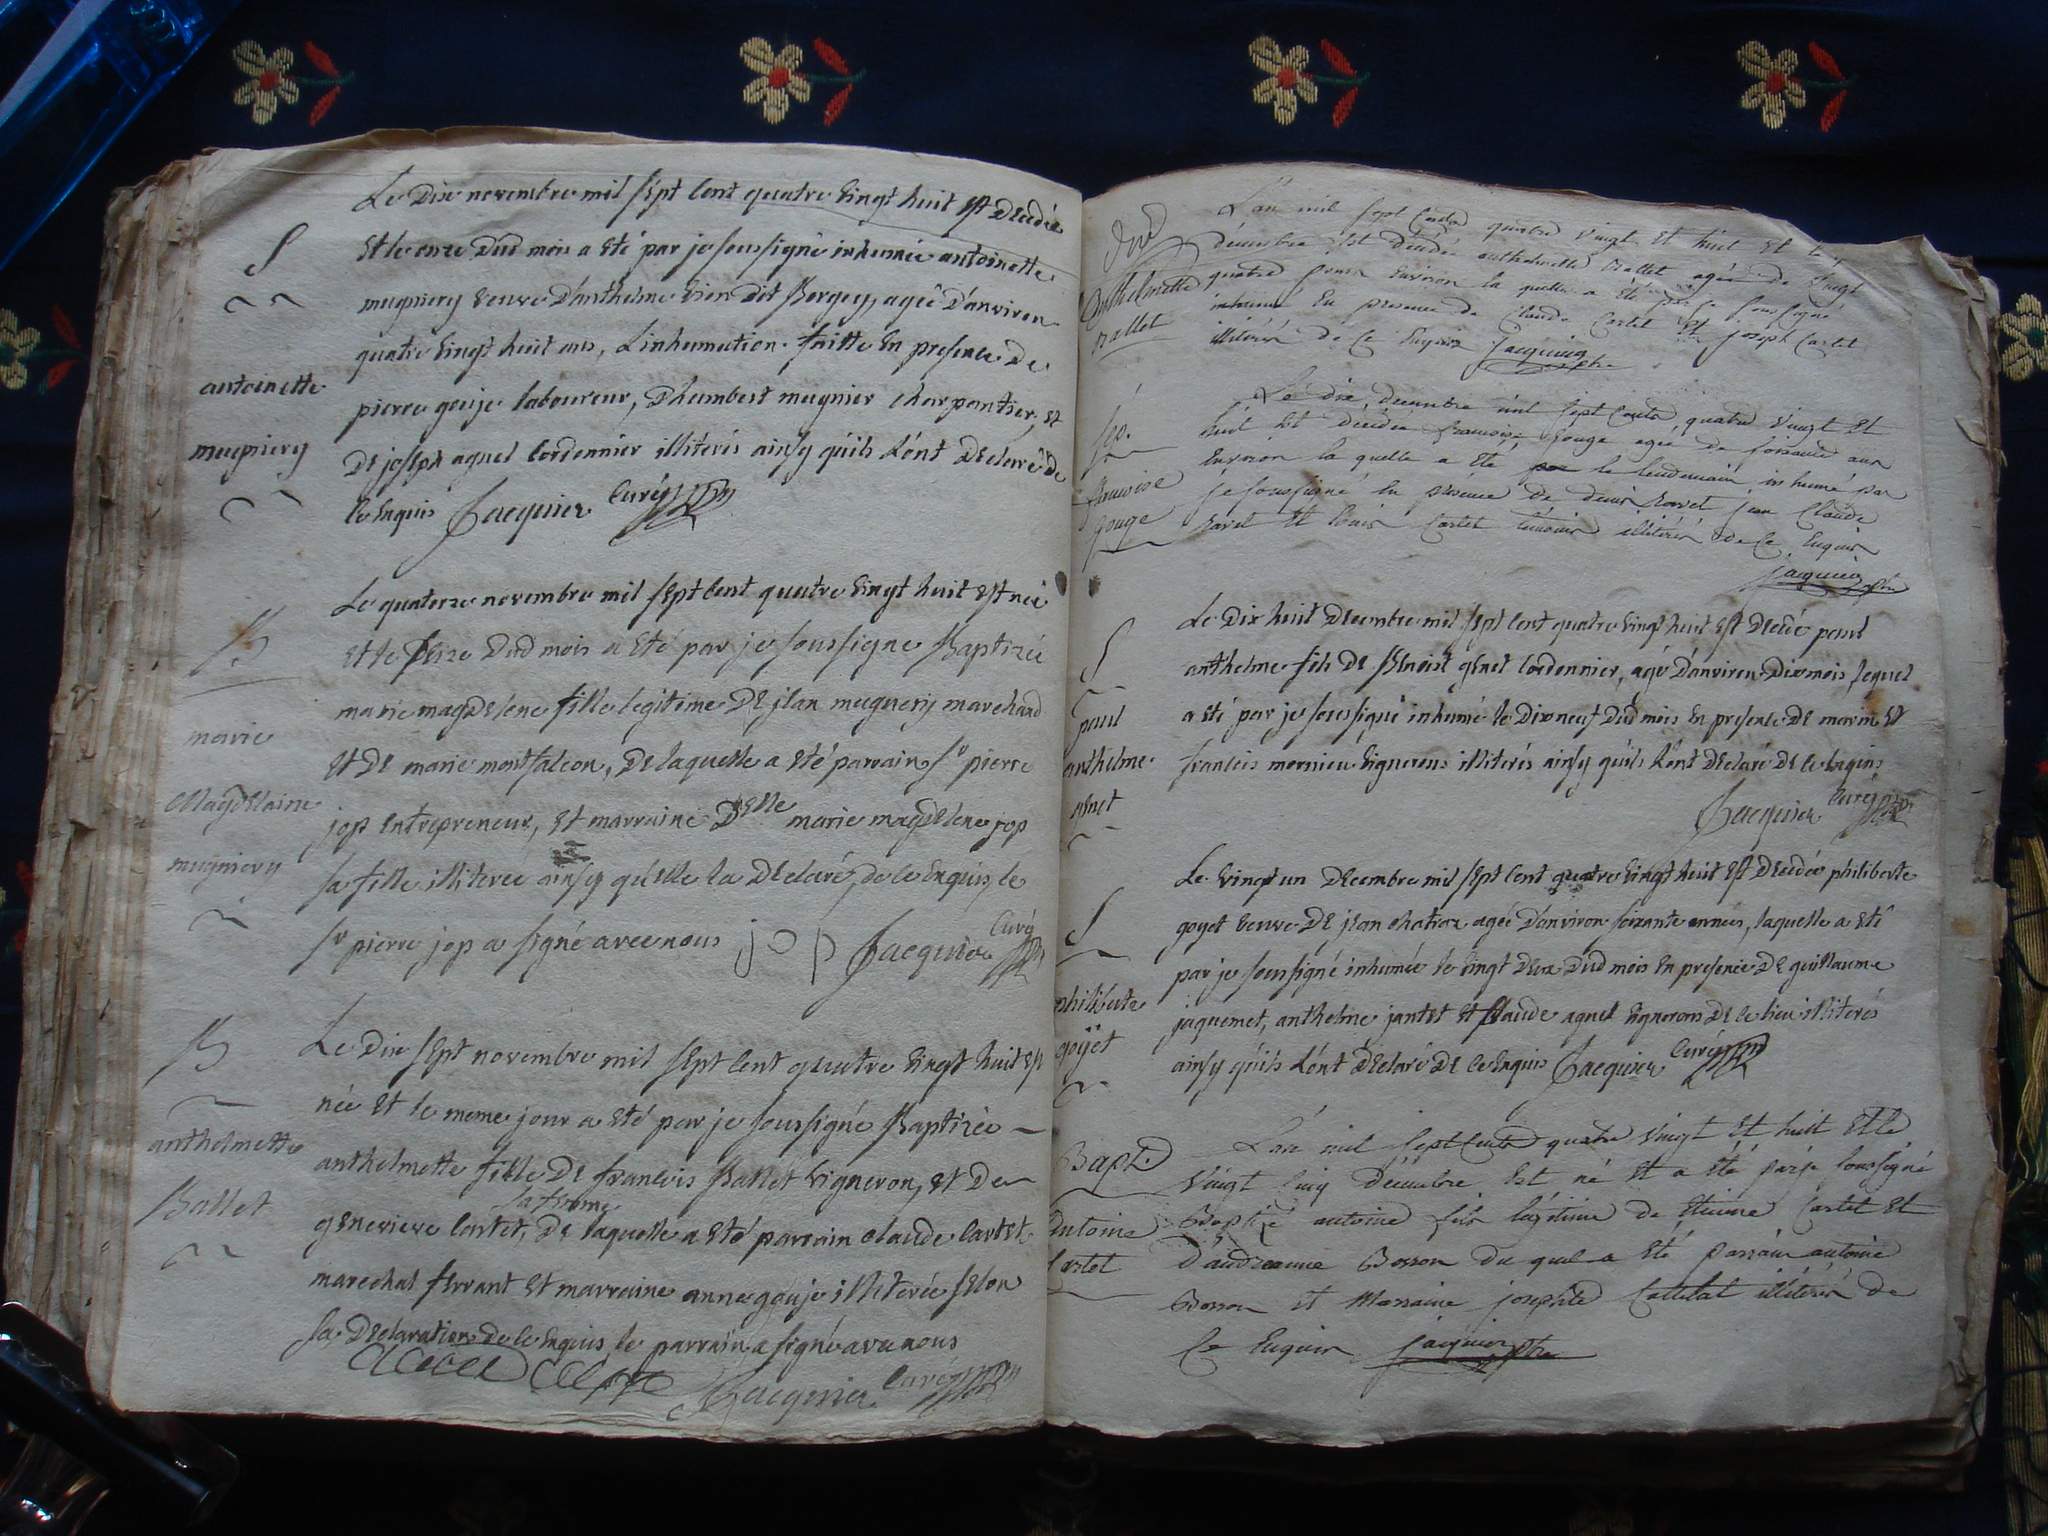 Le Dix novembre mil sept cent quatre vingt huit est Decedée
S
et le onze Dud mois a eté par je soussigné inhumée antoinette
mugniery veuve D'anthelme vion dit Borgey, agée D'anviron
quatre vingt huit ans, L'inhumation faitte en presence De
antoinette
pierre gouje laboureur, D'humbert mugnier charpantier, et
mugniery
De joseph agnel Cordonnier illiterés ainsy quils L'ont Declaré de
ce enquis Jacquier Curé
Le quatorze novembre mil sept cent quatre vingt huit est née
B
et le seize Dud mois a eté par je soussigne Baptizée
marie magdelene fille legitime De jean mugnery marchand
marie
et De marie montfalcon, De laquelle a eté parrain Sr pierre
Magdelaine
jop entrepreneur, et marraine Delle marie magdelene jop
mugniery
sa fille illiterée ainsy qu'elle la Declaré, de ce enquis, le
Sr pierre jop a signé avec nous jop Jacquier Curé
B
Le Dix sept novembre mil sept cent quatre vingt huit est
née et le meme jour a eté par je soussigné Baptizée
anthelmette
anthelmette fille De francois Ballet vigneron, et De
sa femme
Ballet
genevieve Cartet, De laquelle a eté parrain claude Cartet
marechal ferrant et marraine anne gouje illiterée selon
sa Declaration de ce enquis le parrain a signé avec nous
Jacquier Curé
L'an mil sept cents quatre vingt et huit et le
décembre est décédée anthelmette Ballet agée de vingt
Anthelmette
quatre jours environ la quelle a été par je soussigné
Ballet
inhumée en presence de Claude Cartet et joseph Cartet
illitérés de ce enquis Jacquier ptre
Le dix decembre mil sept cents quatre vingt et
sep.
huit est décédée francoise gouge agée de soixante ans
environ la quelle a eté par le lendemain inhumé par
francoise
je soussigné en présence de denis Ravet jean Claude
gouge
Ravet et louis Cartet témoins illitérés de ce enquis
jacquier ptre
Le Dix huit Decembre mil sept cent quatre vingt huit est Decedé paul
S
anthelme fils De Benoist genet Cordonnier, agé D'anviron Dix mois, lequel
paul
a eté par je soussigné inhumé le Dix neuf Dud mois en presence De marin et
anthelme
francois mornieu vignerons illiterés ainsy quils L'ont Declaré De ce enquis
genet
Jacquier Curé
Le vingt un Decembre mil sept cent quatre vingt huit est Decedée philiberte
S
goyet veuve De jean chatron agée D'anviron soixante années, laquelle a eté
par je soussigné inhumée le vingt Deux Dud mois en presence De guillaume
philiberte
jaquemet, anthelme jantet et Claude agnel vignerons De ce lieu illiterés
goyet
ainsy quils L'ont Declaré De ce enquis Jacquier Curé
Bapt.
L'an mil sept cents quatre vingt et huit et le
vingt cinq décembre est né et a été par je soussigné
Antoine
Baptisé antoine fils légitime de Etienne Cartet et
Cartet
d'andréanne Bosson du quel a été parrain antoine
Bosson et Marraine josephte illitérés de
Ce Enquis jacquier ptre